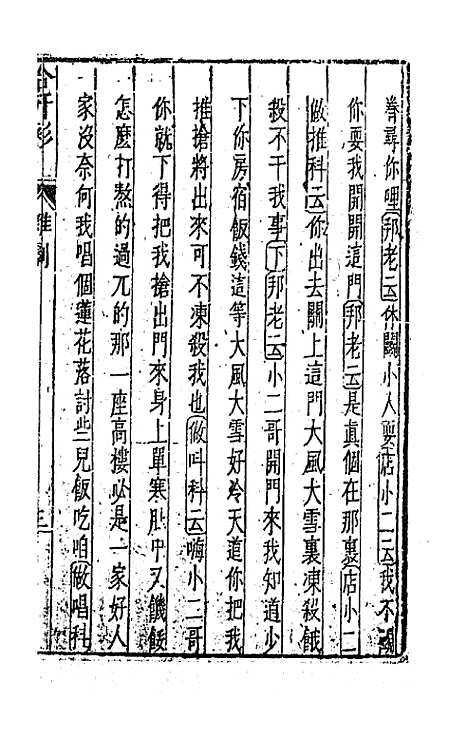 眷尋你哩邦老云休關小人耍店小二云我不
你耍我開開這門邦老云是真個在那裏店小二
做推科云你出去關上這門大風大雪裏凍殺餓
殺不干我事下邦老云小二哥開門來我知道少
下你房宿飯錢這等大風大雪好冷天道你把我
推搶將出來可不凍殺我也做叫科云嗨小二哥
你就下得把我搶出門來身上單寒肚中又饑餒
怎麽打熬的過兀的那一座高樓必是一家好人
家沒奈何我唱個蓮花落討些兒飯吃咱做唱科
合汗衫
雜劇
三